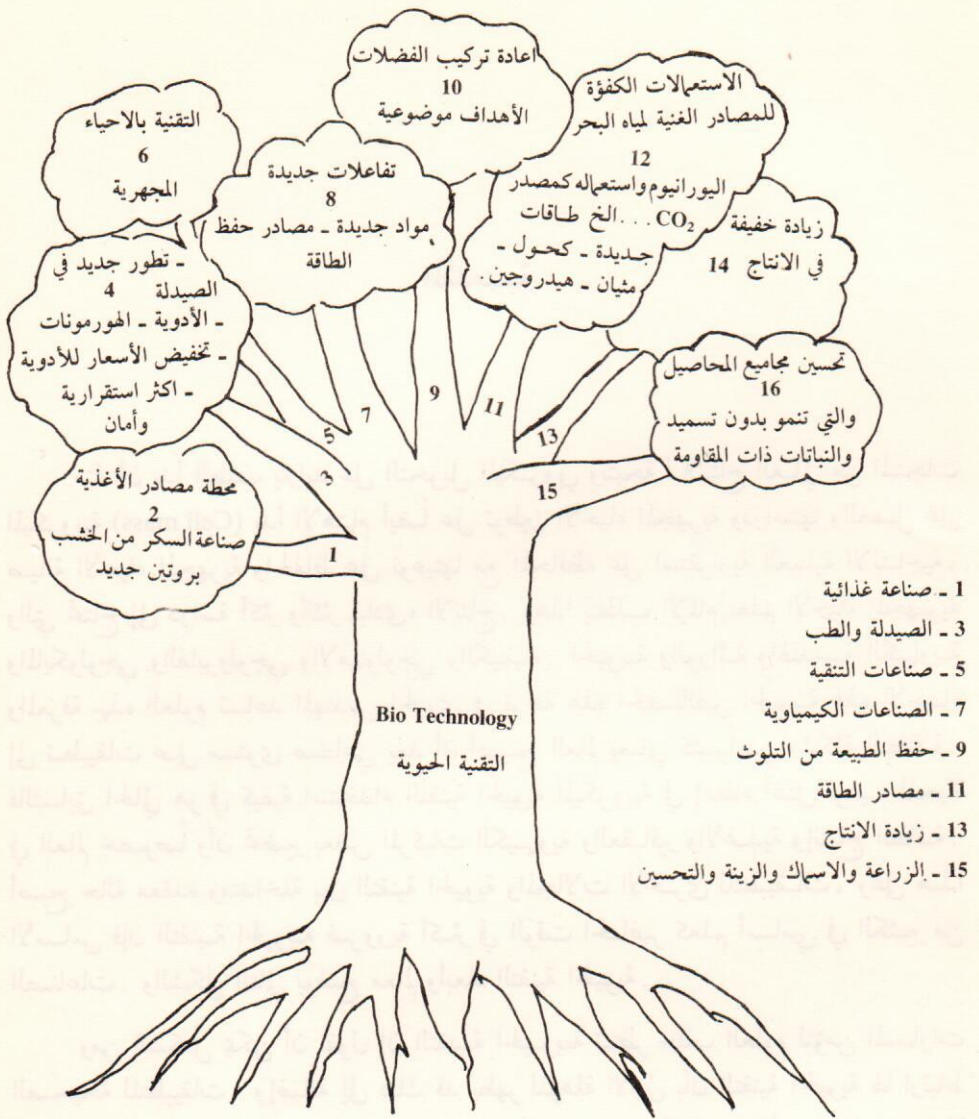 اعادة تركيب الفضلات
10
الأهداف موضوعية
الاستعمالات الكفؤة
للمصادر الغنية لمياه البحر
12
اليورانيوم واستعماله كمصدر
CO₂ ... الخ طاقات
جديدة ـ كحول ـ
مثيان ـ هيدروجين
التقنية بالاحياء
6
المجهرية
تفاعلات جديدة
8
مواد جديدة ـ مصادر حفظ
الطاقة
زيادة خفيفة
في الانتاج 14
ـ تطور جديد في
الصيدلة 4
ـ الأدوية ـ الهورمونات
ـ تخفيض الأسعار للأدوية
ـ اكثر استقرارية
وأمان
تحسين مجاميع المحاصيل
16
والتي تنمو بدون تسميد
والنباتات ذات المقاومة
محطة مصادر الأغذية
2
صناعة السكر من الخشب
بروتين جديد
1
3
5
7
9
11
13
15
Bio Technology
التقنية الحيوية
1 ـ صناعة غذائية
3 ـ الصيدلة والطب
5 ـ صناعات التنقية
7 ـ الصناعات الكيمياوية
9 ـ حفظ الطبيعة من التلوث
11 ـ مصادر الطاقة
13 ـ زيادة الانتاج
15 ـ الزراعة والاسماك والزينة والتحسين